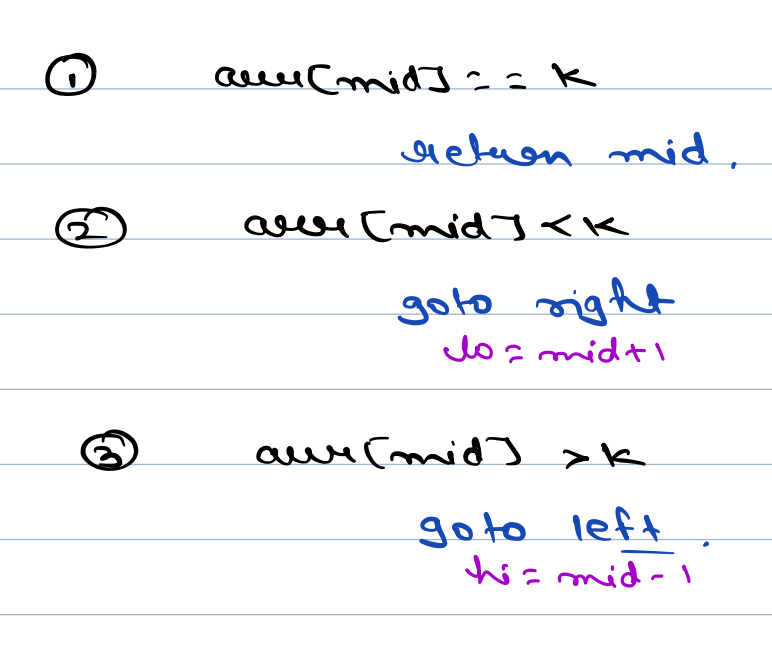 ① arr[mid] == k
return mid.
② arr[mid] < k
goto right
lo = mid+1
③ arr[mid] > k
goto left.
hi = mid-1